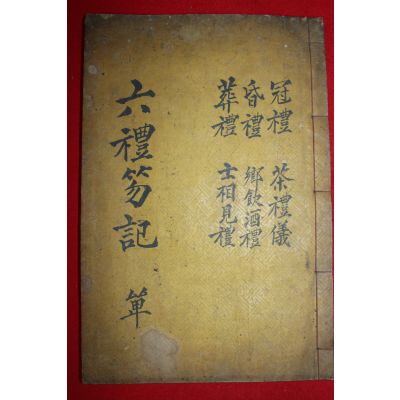 冠禮 茶禮儀
昏禮 鄕飮酒禮
葬禮 士相見禮
六禮笏記 單